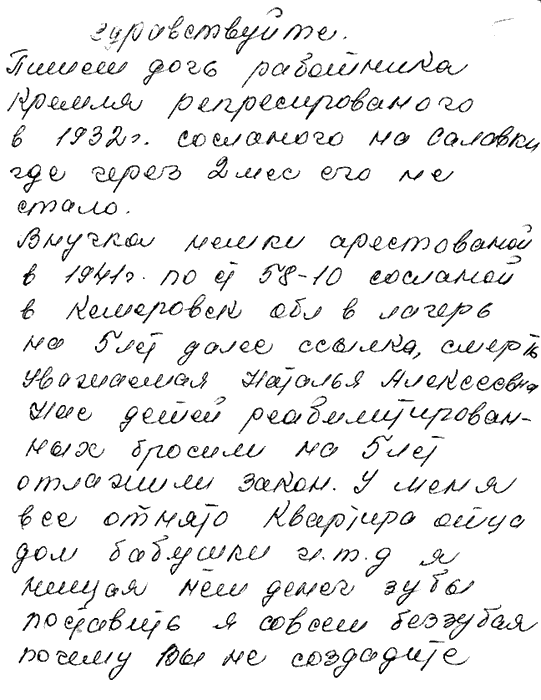 здравствуйте.
Пишет дочь работника
Кремля репресированого
в 1932г. сосланого на Саловки
где через 2 мес его не
стало.
Внучка немки арестованой
в 1941г. по ст 58-10 сосланой
в Кемеровск обл в лагерь
на 5 лет далее ссылка, смерть
Уважаемая Наталья Алексеевна
Нас детей реабилитирован-
ных бросили на 5 лет
отлажили закон. У меня
все отнято Квартира отца
дом бабушки и.т.д я
нищая нет денег зубы
поставить я совсем беззубая
почему Вы не создадите